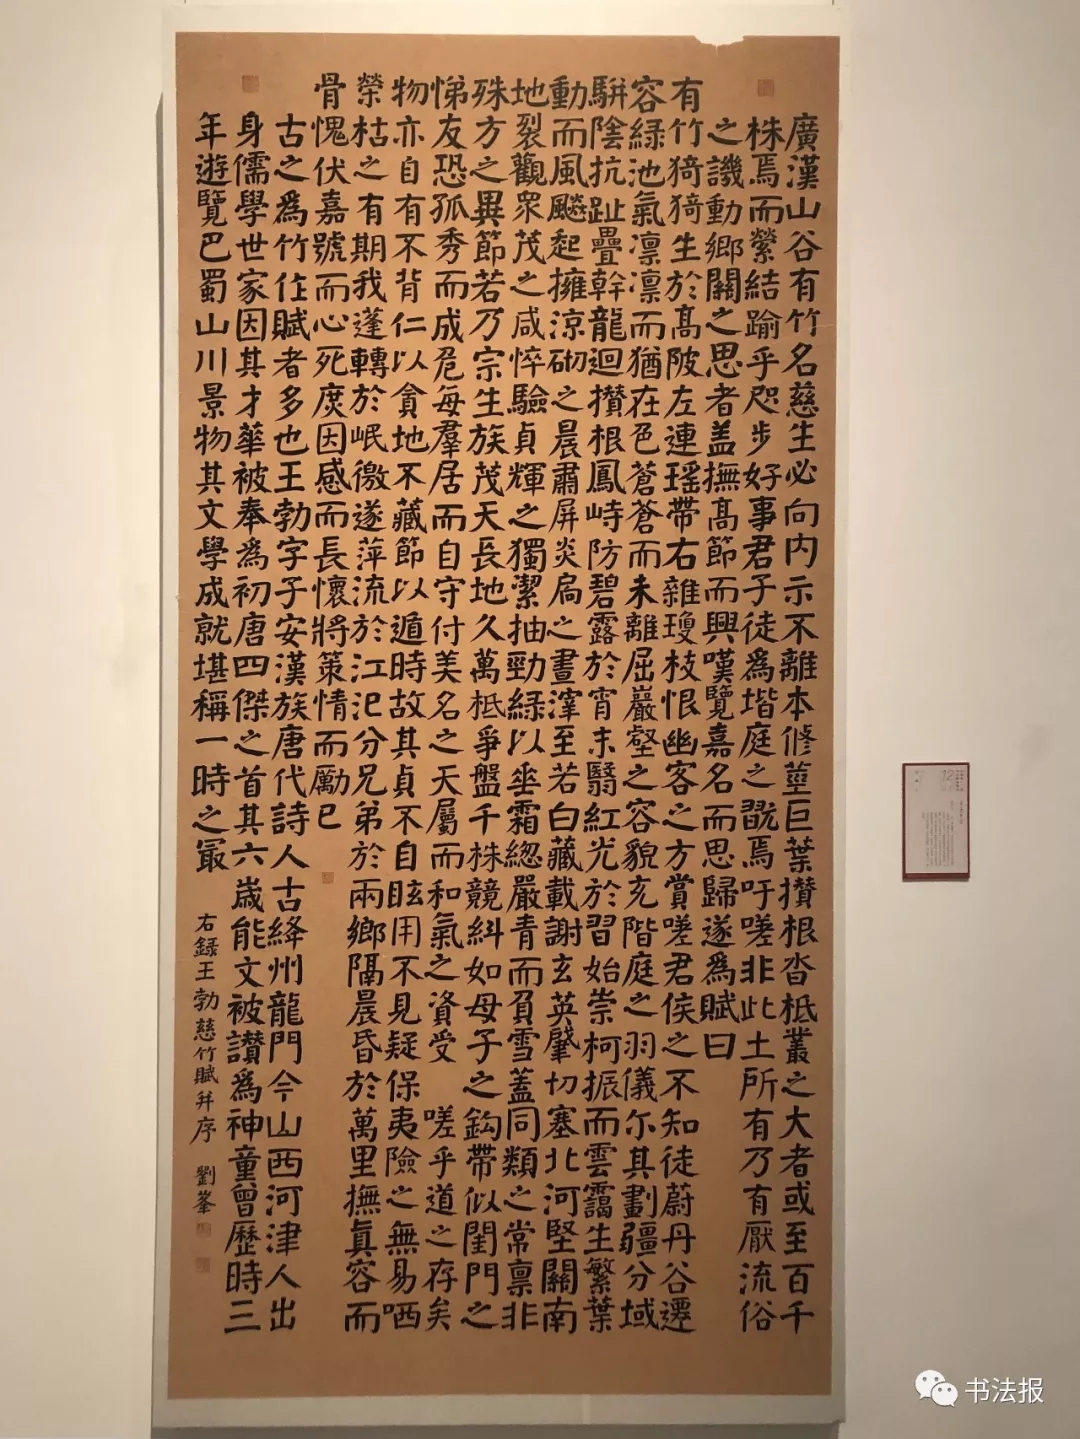 廣漢山谷有竹名慈生必向内示不離本修莖巨葉攢根沓柢叢之大者或至百千
株焉而縈結踰乎咫步好事君子徒爲堦庭之翫焉吁嗟非此土所有乃有厭流俗
之譏動鄉關之思者盖撫髙節而興嘆覽嘉名而思歸遂爲賦曰
有竹猗猗生於髙陂左連瑶帶右雜瓊枝恨幽客之方賞嗟君侯之不知徒蔚丹谷遷
容緑池氣凛凛而猶在色蒼蒼而未離屈巖壑之容貌充階庭之羽儀尓其劃疆分域
駢陰抗趾疊幹龍迴攢根鳳峙防碧露於宵末翳紅光於習始崇柯振而雲靄生繁葉
動而風飈起擁涼砌之晨肅屏炎扃之晝滓至若白藏載謝玄英肇切塞北河堅關南
地裂觀衆茂之咸悴驗貞輝之獨潔抽勁緑以垂霜緫嚴青而負雪蓋同類之常禀非
殊方之異節若乃宗生族茂天長地久萬柢爭盤千株競糾如母子之鈎帶似閨門之
悌友恐孤秀而成危每羣居而自守付美名之天屬而和氣之資受 嗟乎道之存矣
物亦自有不背仁以貪地不藏節以遁時故其貞不自眩用不見疑保夷險之無易哂
榮枯之有期我蓬轉於岷徼遂萍流於江汜分兄弟於兩鄉隔晨昏於萬里撫眞容而
骨愧伏嘉號而心死庹因感而長懷將策情而勵已
古之爲竹作賦者多也王勃字子安漢族唐代詩人古絳州龍門今山西河津人出
身儒學世家因其才華被奉爲初唐四傑之首其六歲能文被讃爲神童曾歷時三
年遊覽巴蜀山川景物其文學成就堪稱一時之冣
右錄王勃慈竹賦并序 劉峯
书法报